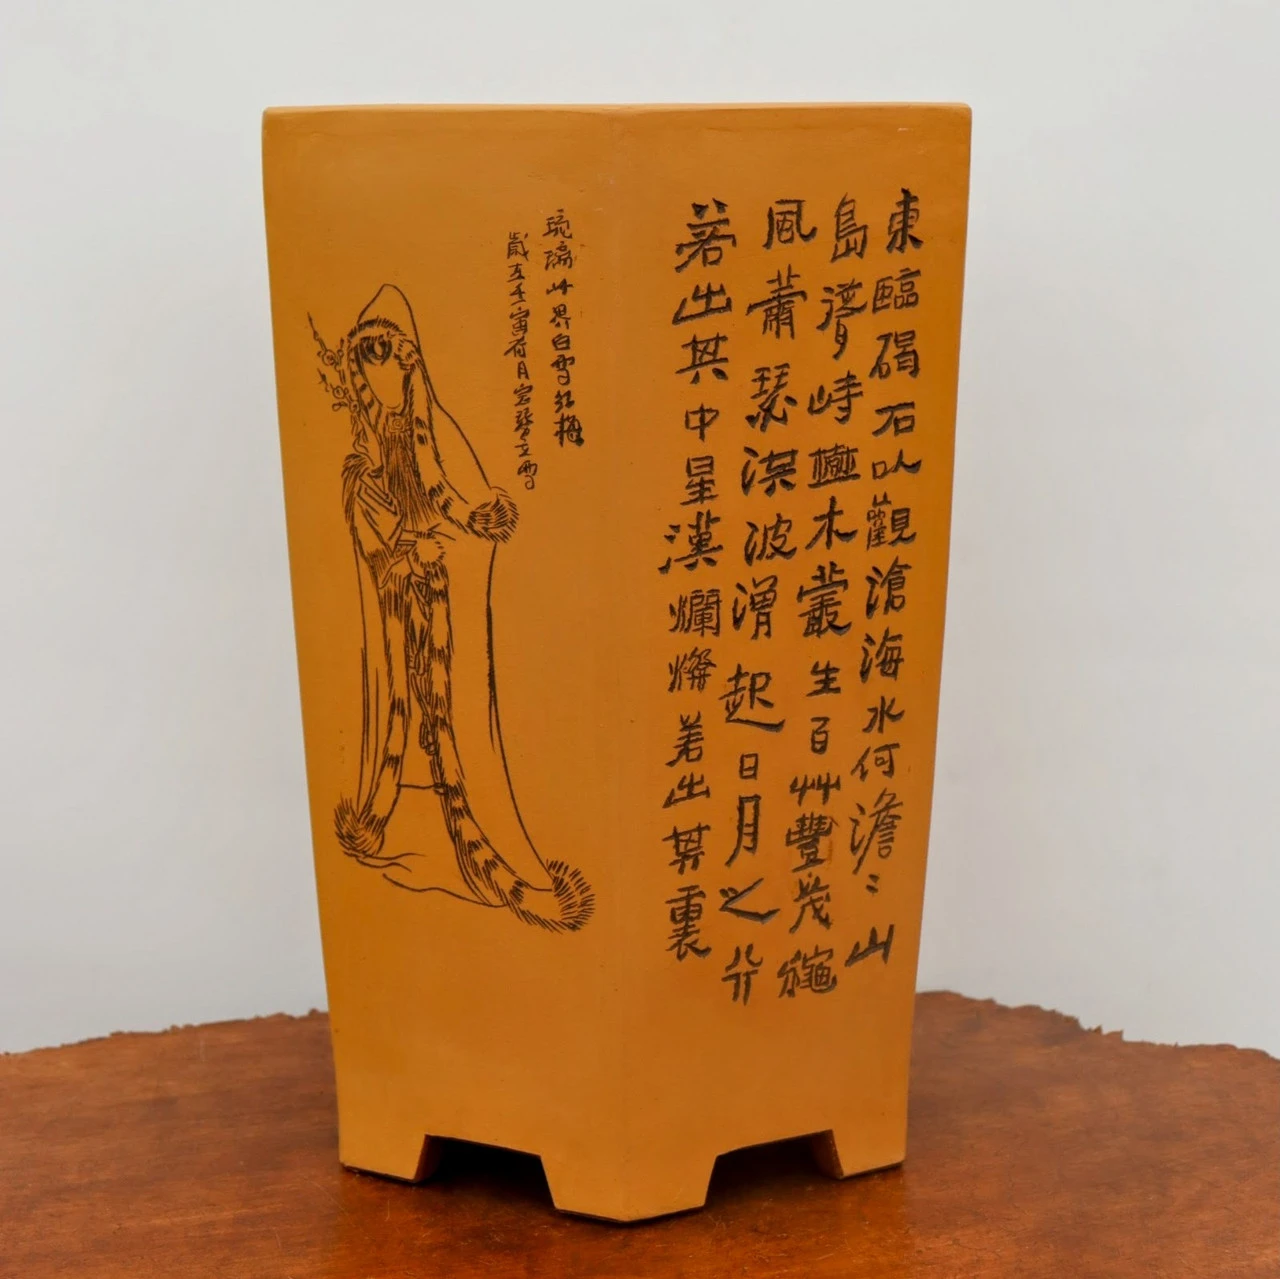 東臨碣石以觀滄海水何澹〻山
島聳峙樹木叢生百艸豐茂龝
風蕭瑟洪波湧起日月之行
若出其中星漢爛燦若出其裏
琉璃世界白雪紅梅
歲在壬寅荷月